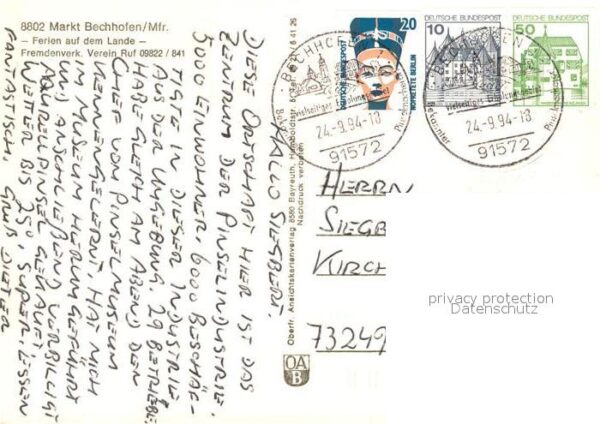 8802 Markt Bechhofen/Mfr.
– Ferien auf dem Lande –
Fremdenverk. Verein Ruf 09822 / 841
HALLO SIEGBERT
DIESE ORTSCHAFT HIER IST DAS
ZENTRUM DER PINSELINDUSTRIE.
5000 EINWOHNER, 6000 BESCHÄF-
TIGTE IN DIESER INDUSTRIE
AUS DER UMGEBUNG. 29 BETRIEBE.
HABE GLEICH AM ABEND DEN
CHEF VOM PINSELMUSEUM
KENNENGELERNT, HAT MICH
IM MUSEUM HERUMGEFÜHRT
UND ANSCHLIEßEND VERBILLIGT
AQUARELLPINSEL GEKAUFT.
WETTER BIS 25°, SUPER. ESSEN
FANTASTISCH. GRUß DIETER
Oberfr. Ansichtskartenverlag 8580 Bayreuth, Humboldtstr.
Nachdruck verboten
OA
B
20
DEUTSCHE BUNDESPOST
NOFRETETE BERLIN
10
DEUTSCHE BUNDESPOST
50
DEUTSCHE BUNDESPOST
BECHHOFEN
24.-9.94-18
91572
BECHHOFEN
24.-9.94-18
91572
HERRN
SIEGB
KIRCH
73249
privacy protection
Datenschutz